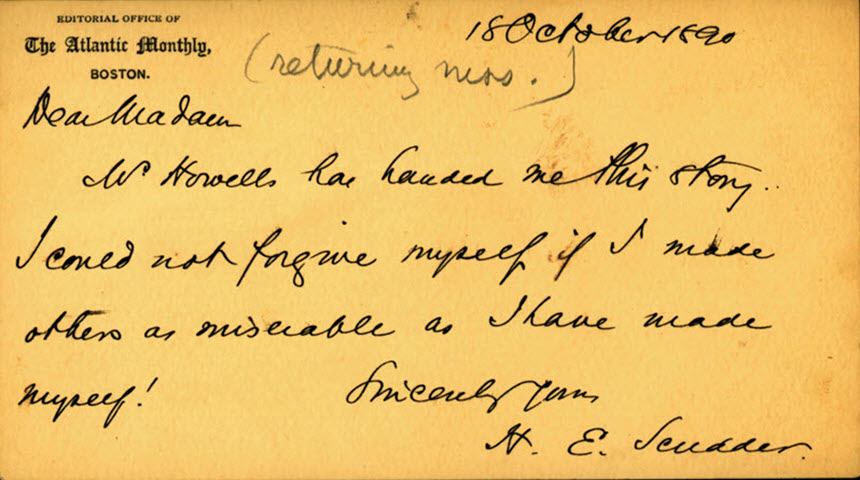 EDITORIAL OFFICE OF
The Atlantic Monthly,
BOSTON.
18 October 1890
(returning mss.)
Dear Madam
Mr Howells has handed me this story.
I could not forgive myself if I made
others as miserable as I have made
myself!
Sincerely yours
H. E. Scudder.